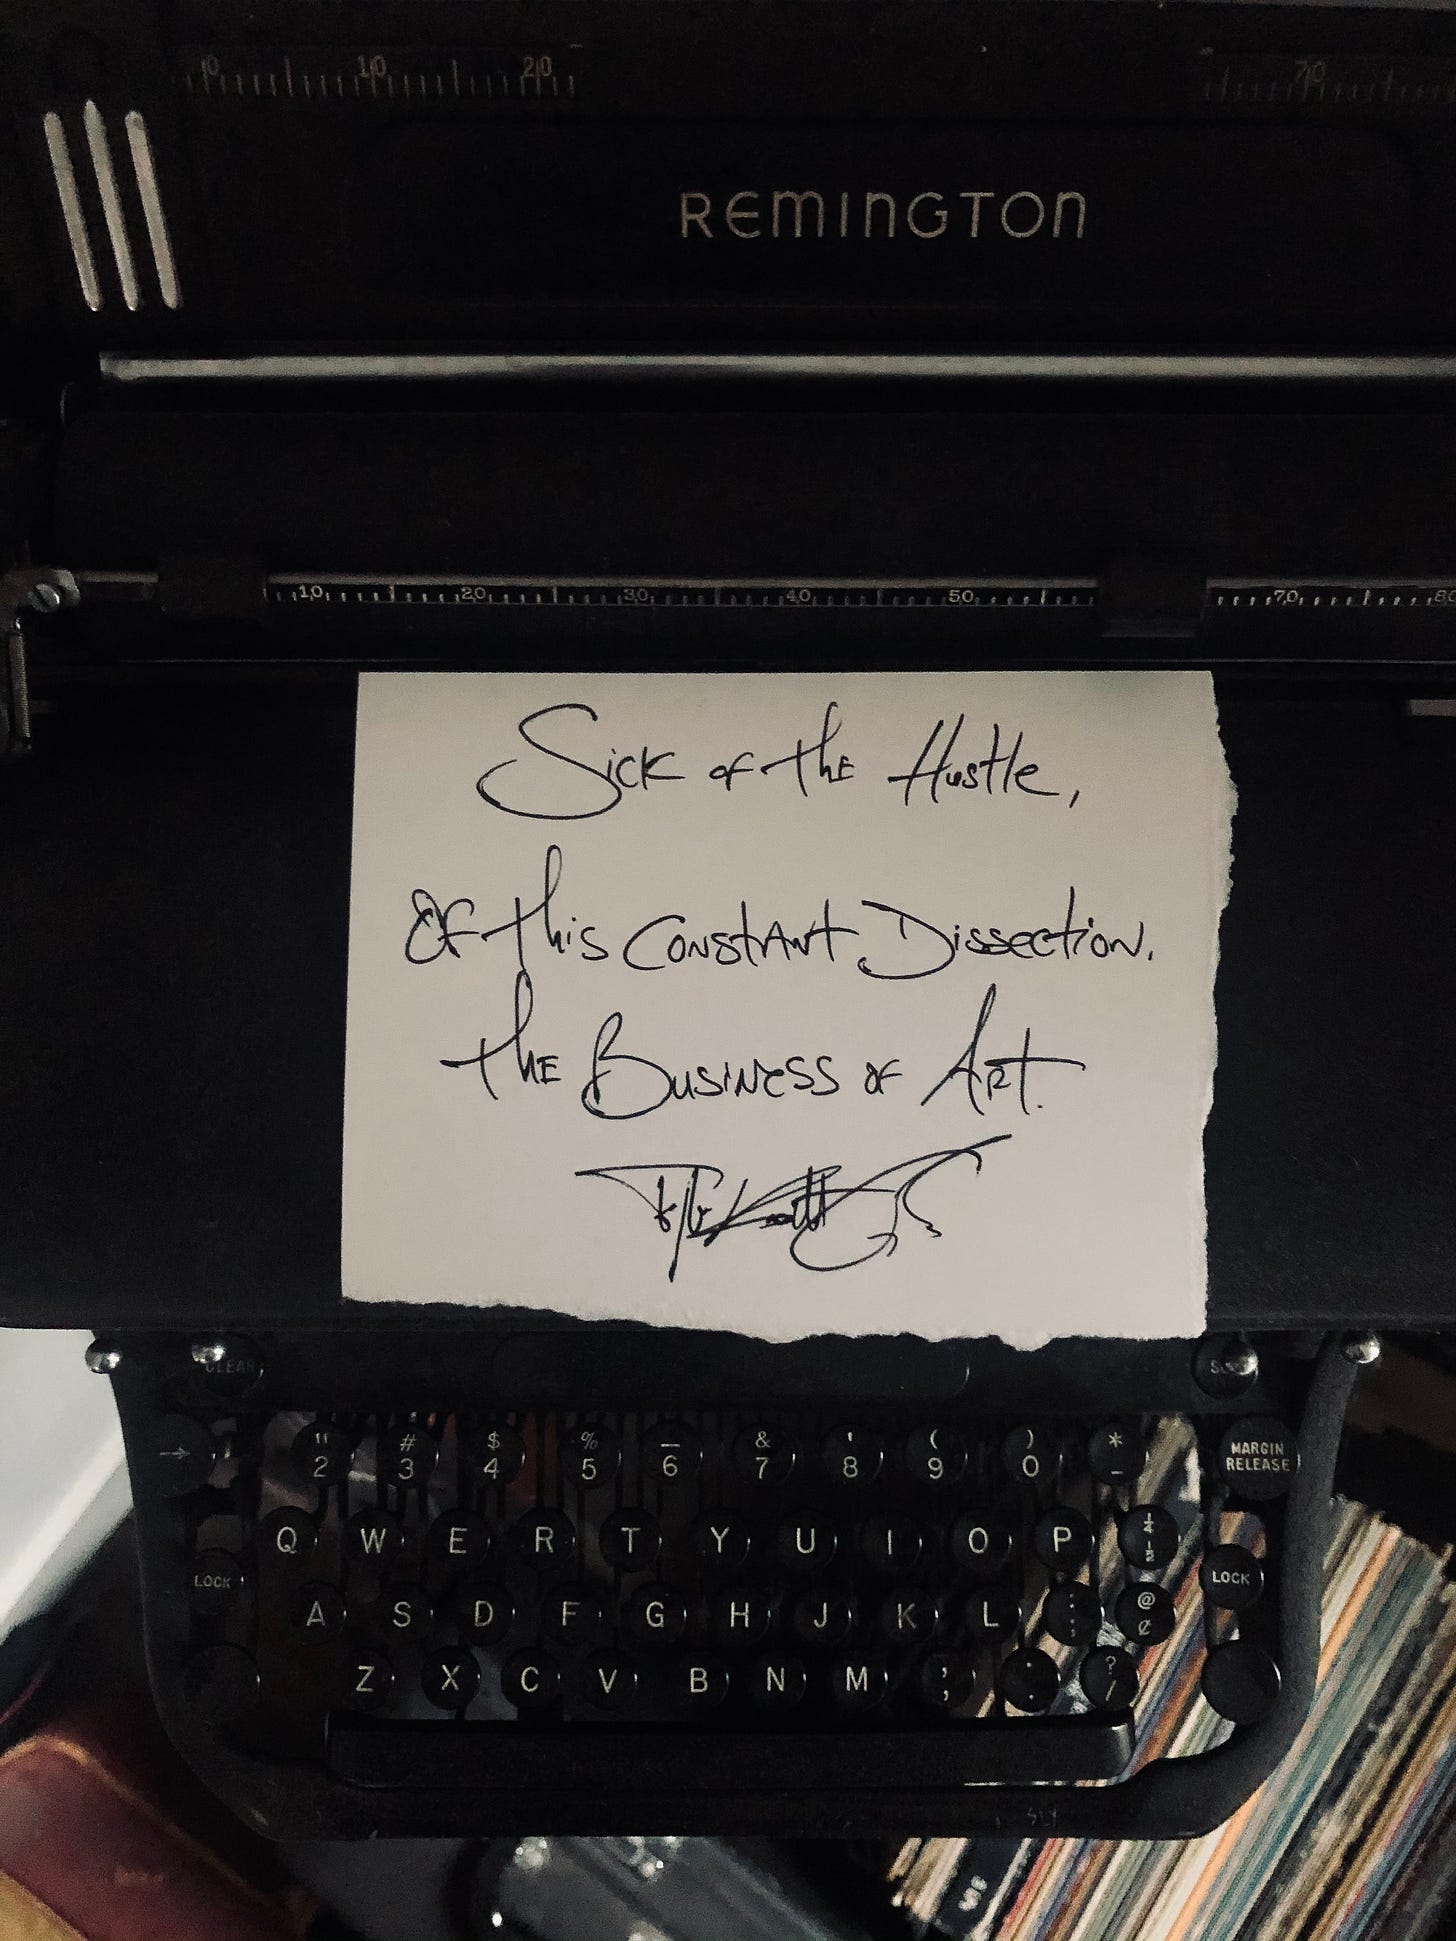 0 10 20 70
REMINGTON
10 20 30 40 50 70 80
Sick of the Hustle,
Of this Constant Dissection.
The Business of Art.
CLEAR
" # $ % _ & ' ( ) *
2 3 4 5 6 7 8 9 0 -
MARGIN
RELEASE
Q W E R T Y U I O P ¼ ½
LOCK
LOCK
A S D F G H J K L : ; @ ¢
Z X C V B N M , ; . . ? /